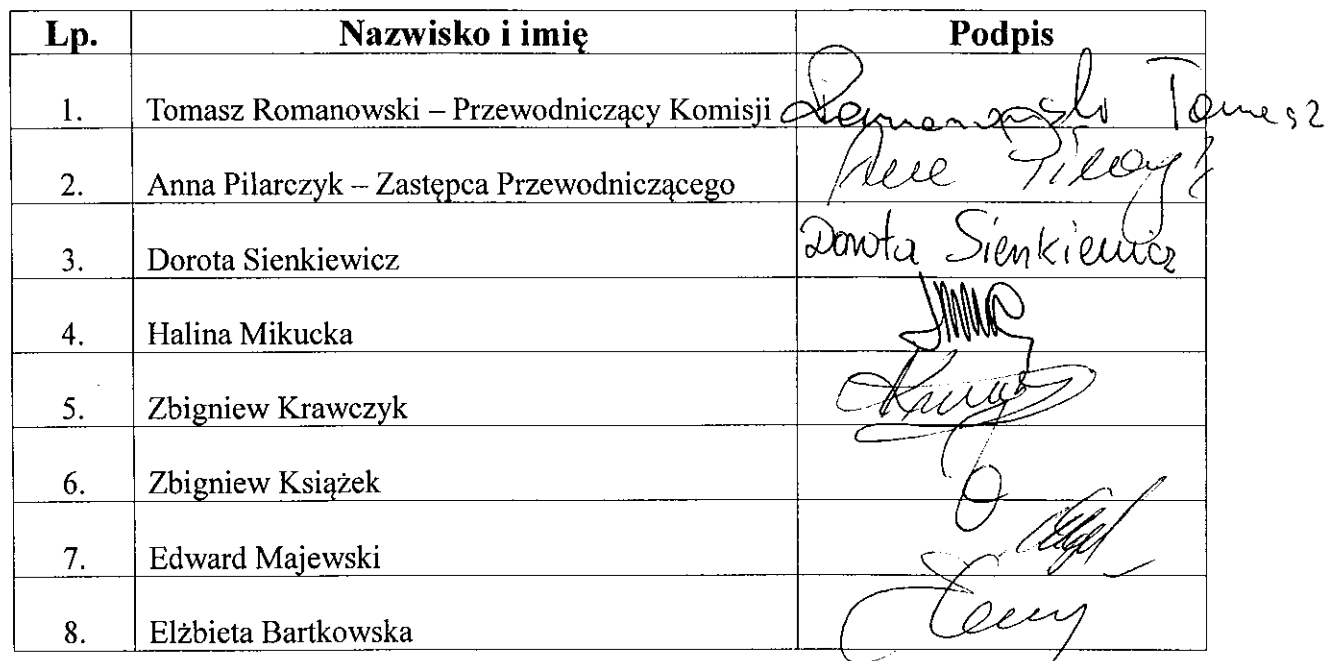 Lp. Nazwisko i imię Podpis
1. Tomasz Romanowski – Przewodniczący Komisji Romanowski Tomasz
2. Anna Pilarczyk – Zastępca Przewodniczącego
3. Dorota Sienkiewicz Dorota Sienkiewicz
4. Halina Mikucka
5. Zbigniew Krawczyk
6. Zbigniew Książek
7. Edward Majewski
8. Elżbieta Bartkowska